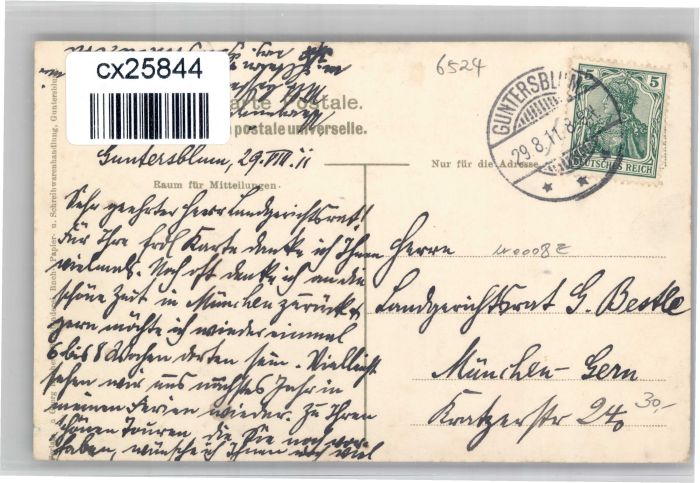 cx25844
6524
Carte Postale.
postale universelle.
GUNTERSBLUM
29.8.11. 8-9V
5
DEUTSCHES REICH
Guntersblum, 29. VIII. 11
Raum für Mitteilungen.
Nur für die Adresse
Sehr geehrter Herr Landgerichtsrat!
Für Ihre frdl. Karte danke ich Ihnen
vielmals. Noch oft denke ich an die
schöne Zeit in München zurück &
gern möchte ich wieder einmal
6 bis 8 Wochen dorten sein. Vielleicht
sehen wir uns nächstes Jahr in
meinen Ferien wieder. Zu Ihren
schönen Touren, die Sie noch vor-
haben, wünsche ich Ihnen noch viel
Herrn
Landgerichtsrat G. Bestle
München-Gern
Kratzerstr 24
30,-
Papier- u. Schreibwarenhandlung, Guntersblum